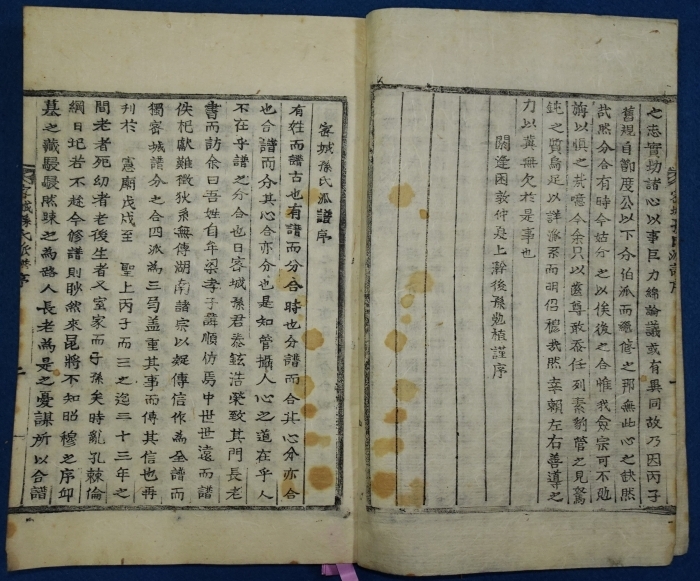 之忠實劫諸心以事巨力綿論議或有異同故乃因丙子
舊規自節度公以下分伯派而繼修之那無此心之缺然
哉然分合有時今姑分之以俟後之合惟我僉宗可不勉
旃以愼之哉噫今余只以齒尊敢忝任列素蔑管之見駑
鈍之質焉足以詳派系而明昭穆我然幸賴左右善導之
力以冀無欠於是事也
閼逢困敦仲泉上澣後孫勉植謹序
密城孫氏派譜序
有姓而譜古也有譜而分合時也分譜而合其心分亦合
也合譜而分其心合亦分也是知管攝人心之道在乎人
不在乎譜之分合也日密城孫君泰鉉浩榮致其門長老
書而訪余曰吾姓自牟梁孝子諱順仿焉中世世遠而譜
佚杞獻難徵狄系無傳湖南諸宗以疑傳信作為全譜而
獨密城譜分之合四派為三弓盖重其事而傳其信也再
刊於 憲廟戊戌至 聖上丙子而三之迄三十三年之
間老者死幼者老後生者又室家而子孫矣時亂孔棘倫
綱日圮若不趁今修譜則眇然來昆將不知昭穆之序仰
墓之藏駸駸然踈之為路人長老為是之憂謀所以合譜